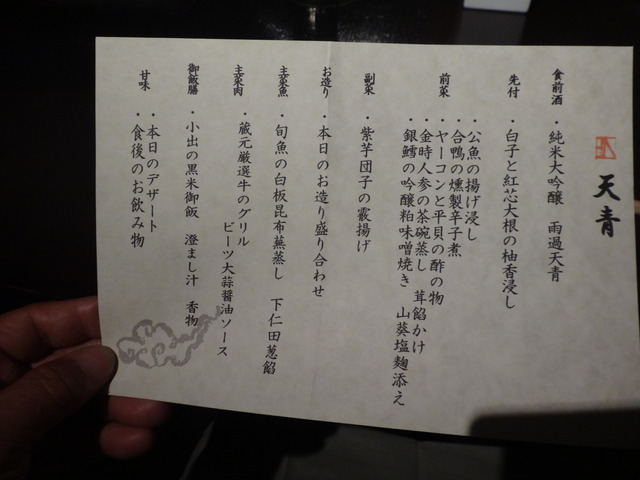 天青
食前酒 ・純米大吟醸 雨過天青
先付 ・白子と紅芯大根の柚香浸し
前菜 ・公魚の揚げ浸し
・合鴨の燻製辛子煮
・ヤーコンと平貝の酢の物
・金時人参の茶碗蒸し 茸餡かけ
・銀鱈の吟醸粕味噌焼き 山葵塩麹添え
副菜 ・紫芋団子の霰揚げ
お造り ・本日のお造り盛り合わせ
主菜魚 ・旬魚の白板昆布蕪蒸し 下仁田葱餡
主菜肉 ・蔵元厳選牛のグリル
ビーツ大蒜醤油ソース
御飯膳 ・小出の黒米御飯 澄まし汁 香物
甘味 ・本日のデザート
・食後のお飲み物